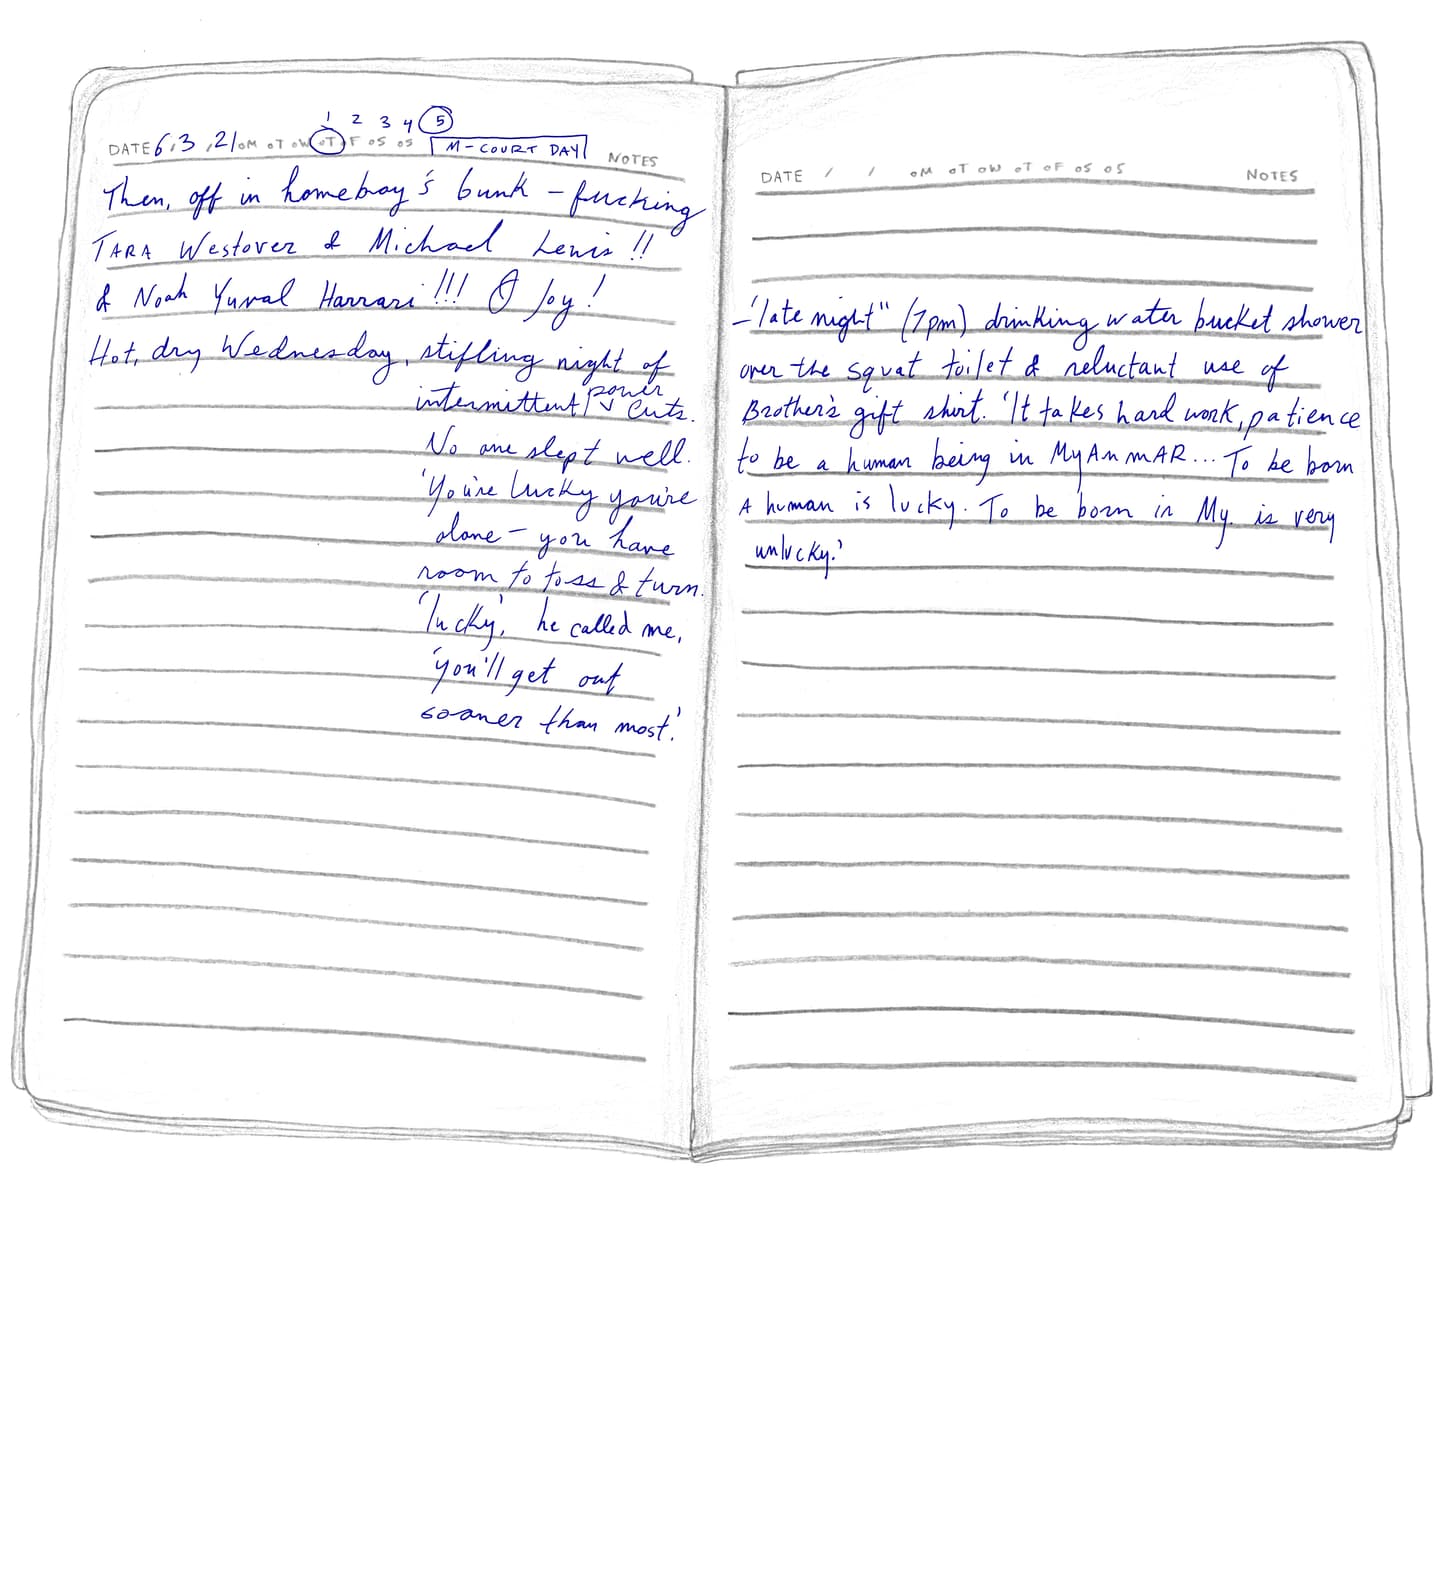 1 2 3 4 5
DATE 6.3.21 oM oT oW oT oF oS oS M-COURT DAY NOTES
Then, off in homeboy's bunk – fucking
TARA Westover & Michael Lewis!!
& Noah Yuval Harrari!!! O Joy!
Hot, dry Wednesday, stifling night of
intermittent power cuts.
No one slept well.
'You're lucky you're
alone – you have
room to toss & turn.
'lucky', he called me,
'you'll get out
sooner than most.'
DATE / / oM oT oW oT oF oS oS NOTES
– 'late night" (7pm) drinking water bucket shower
over the squat toilet & reluctant use of
Brother's gift shirt. 'It takes hard work, patience
to be a human being in MyAnmAR... To be born
A human is lucky. To be born in My. is very
unlucky.'